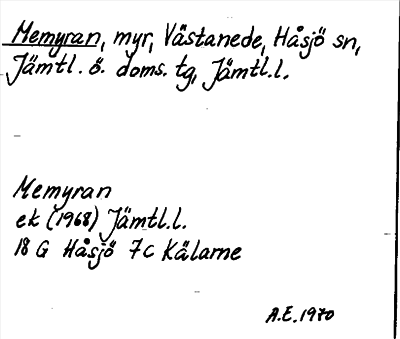 Memyran, myr, Västanede, Håsjö sn,
Jämtl. ö. doms. tg, Jämtl.l.
Memyran
ek (1968) Jämtl.l.
18 G Håsjö 7 c Kälarne
A.E. 1970